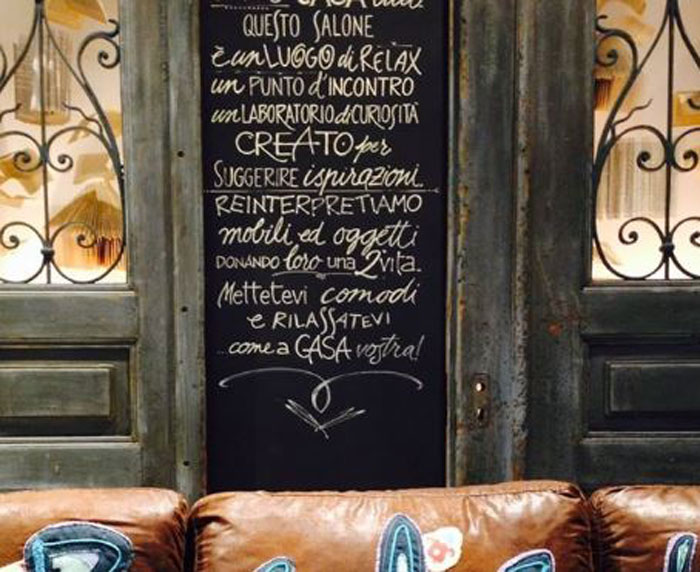 CASA
QUESTO SALONE
è un LUOGO di RELAX
un PUNTO d'INCONTRO
un LABORATORIO di CURIOSITÀ
CREATO per
SUGGERIRE ispirazioni
REINTERPRETIAMO
mobili ed oggetti
DONANDO loro una 2° vita.
Mettetevi comodi
e RILASSATEVI
...come a CASA vostra!